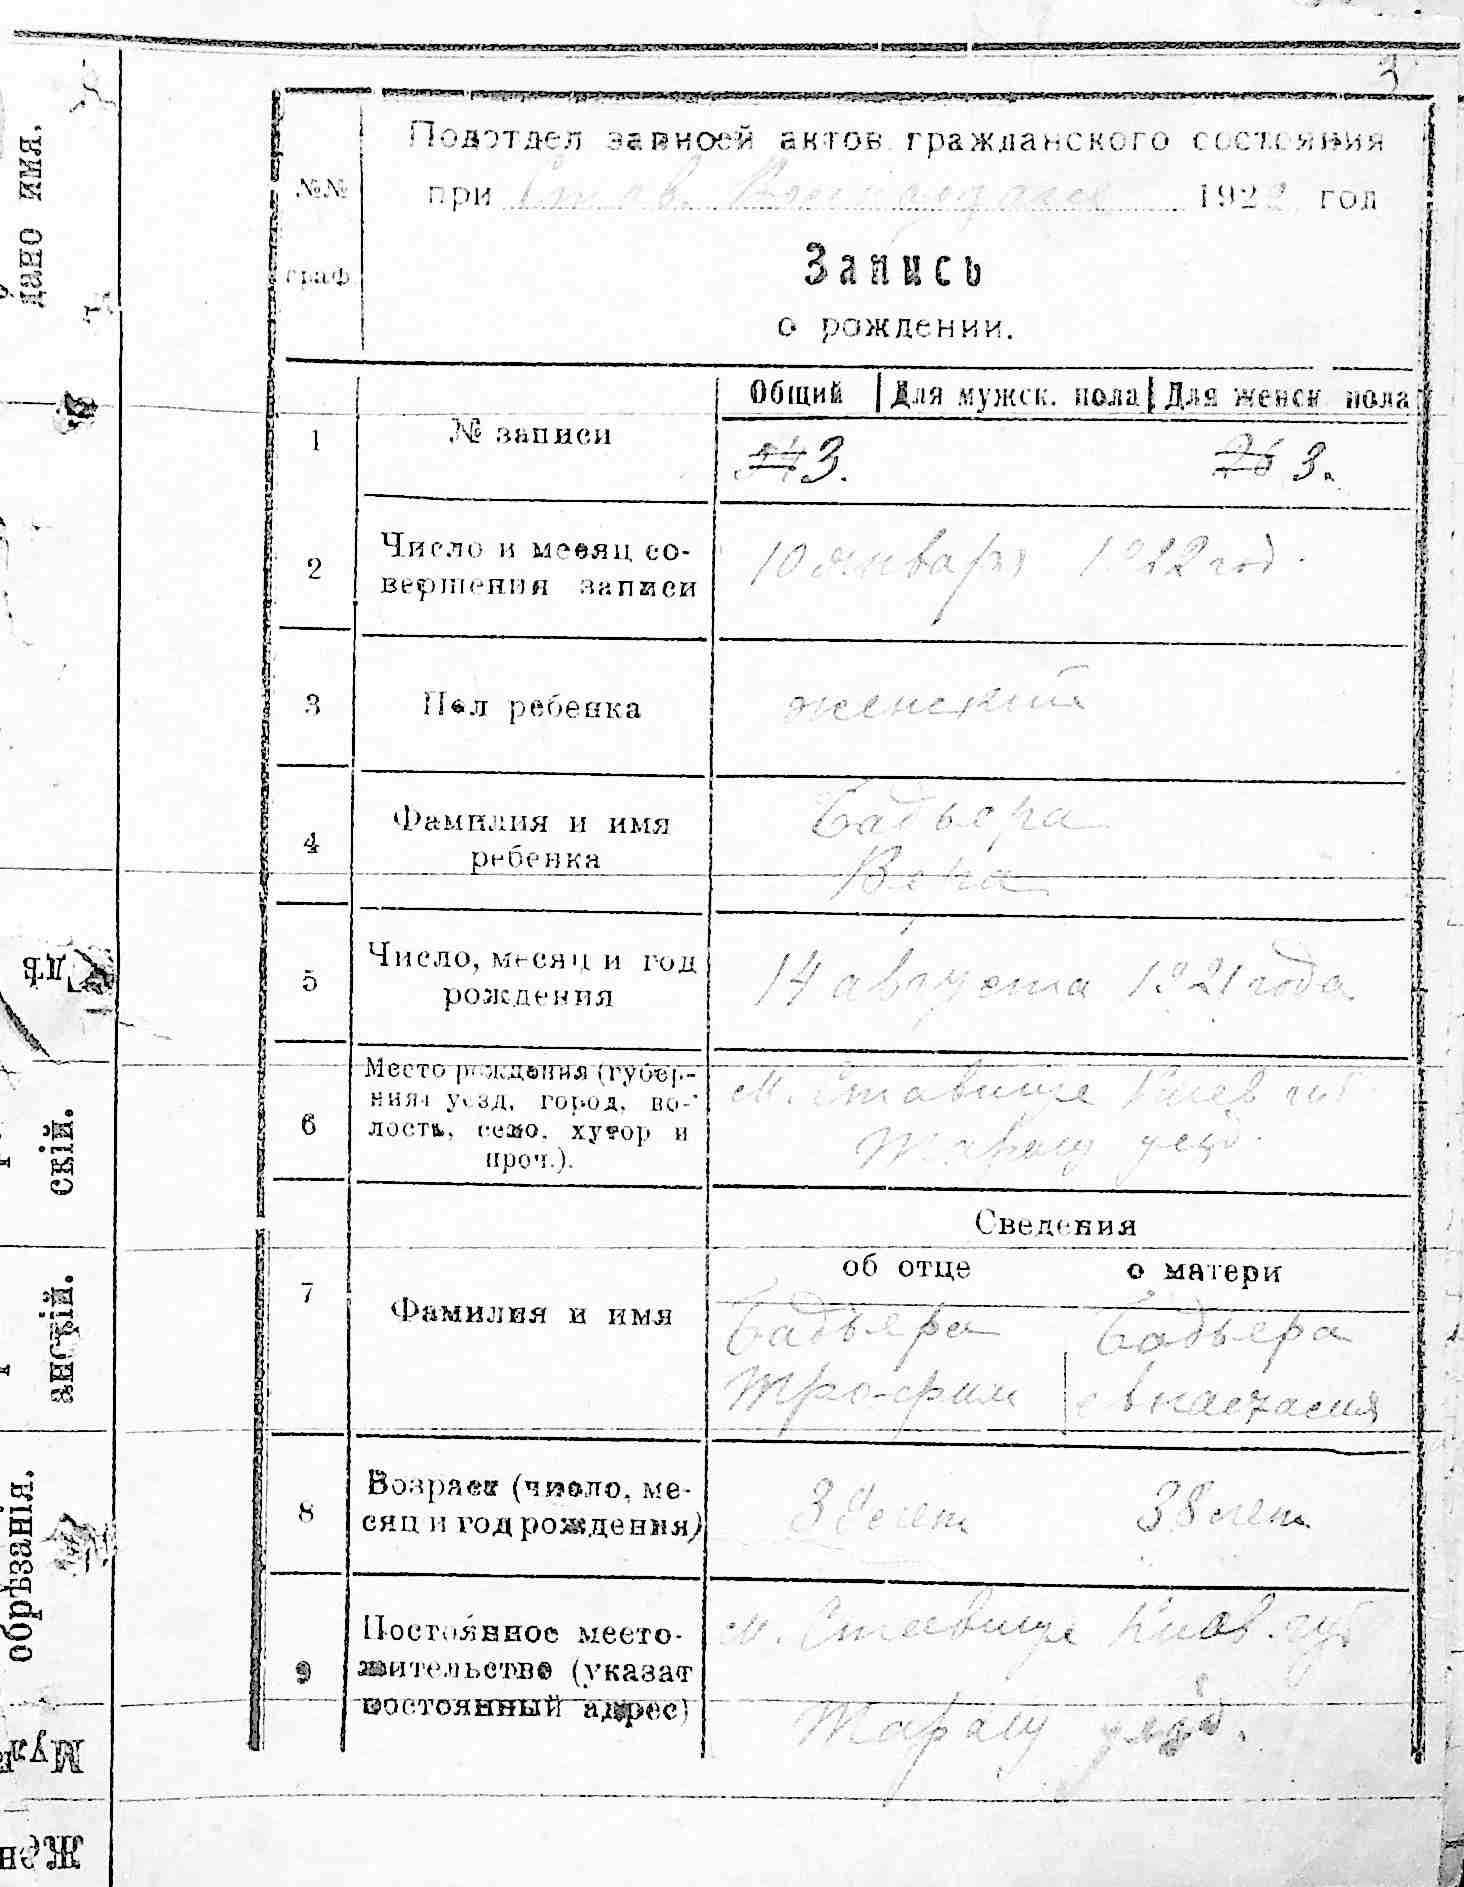 3
Подотдел записей актов гражданского состояния
при Став. 1922 год
№№ граф
Запись
о рождении.
Общий Для мужск. пола Для женск. пола
1 № записи 3. 26 3.
2 Число и месяц со-
вершения записи 10 января 1922 год.
3 Пол ребенка женский
4 Фамилия и имя
ребенка Бадьера
Вера
5 Число, месяц и год
рождения 14 августа 1921 года
6 Место рождения (губер-
ния, уезд, город, во-
лость, село, хутор и
проч.). м. Ставище Киев губ
Таращ уезд.
Сведения
об отце о матери
7 Фамилия и имя Бадьера Бадьера
Трофим Анастасия
8 Возраст (число, ме-
сяц и год рождения) лет 38 лет
9 Постоянное место-
жительство (указат
постоянный адрес) м. Ставище Киев. губ
Таращ уезд.
дано имя.
скій.
анскій.
обрѣзанія.
Жен